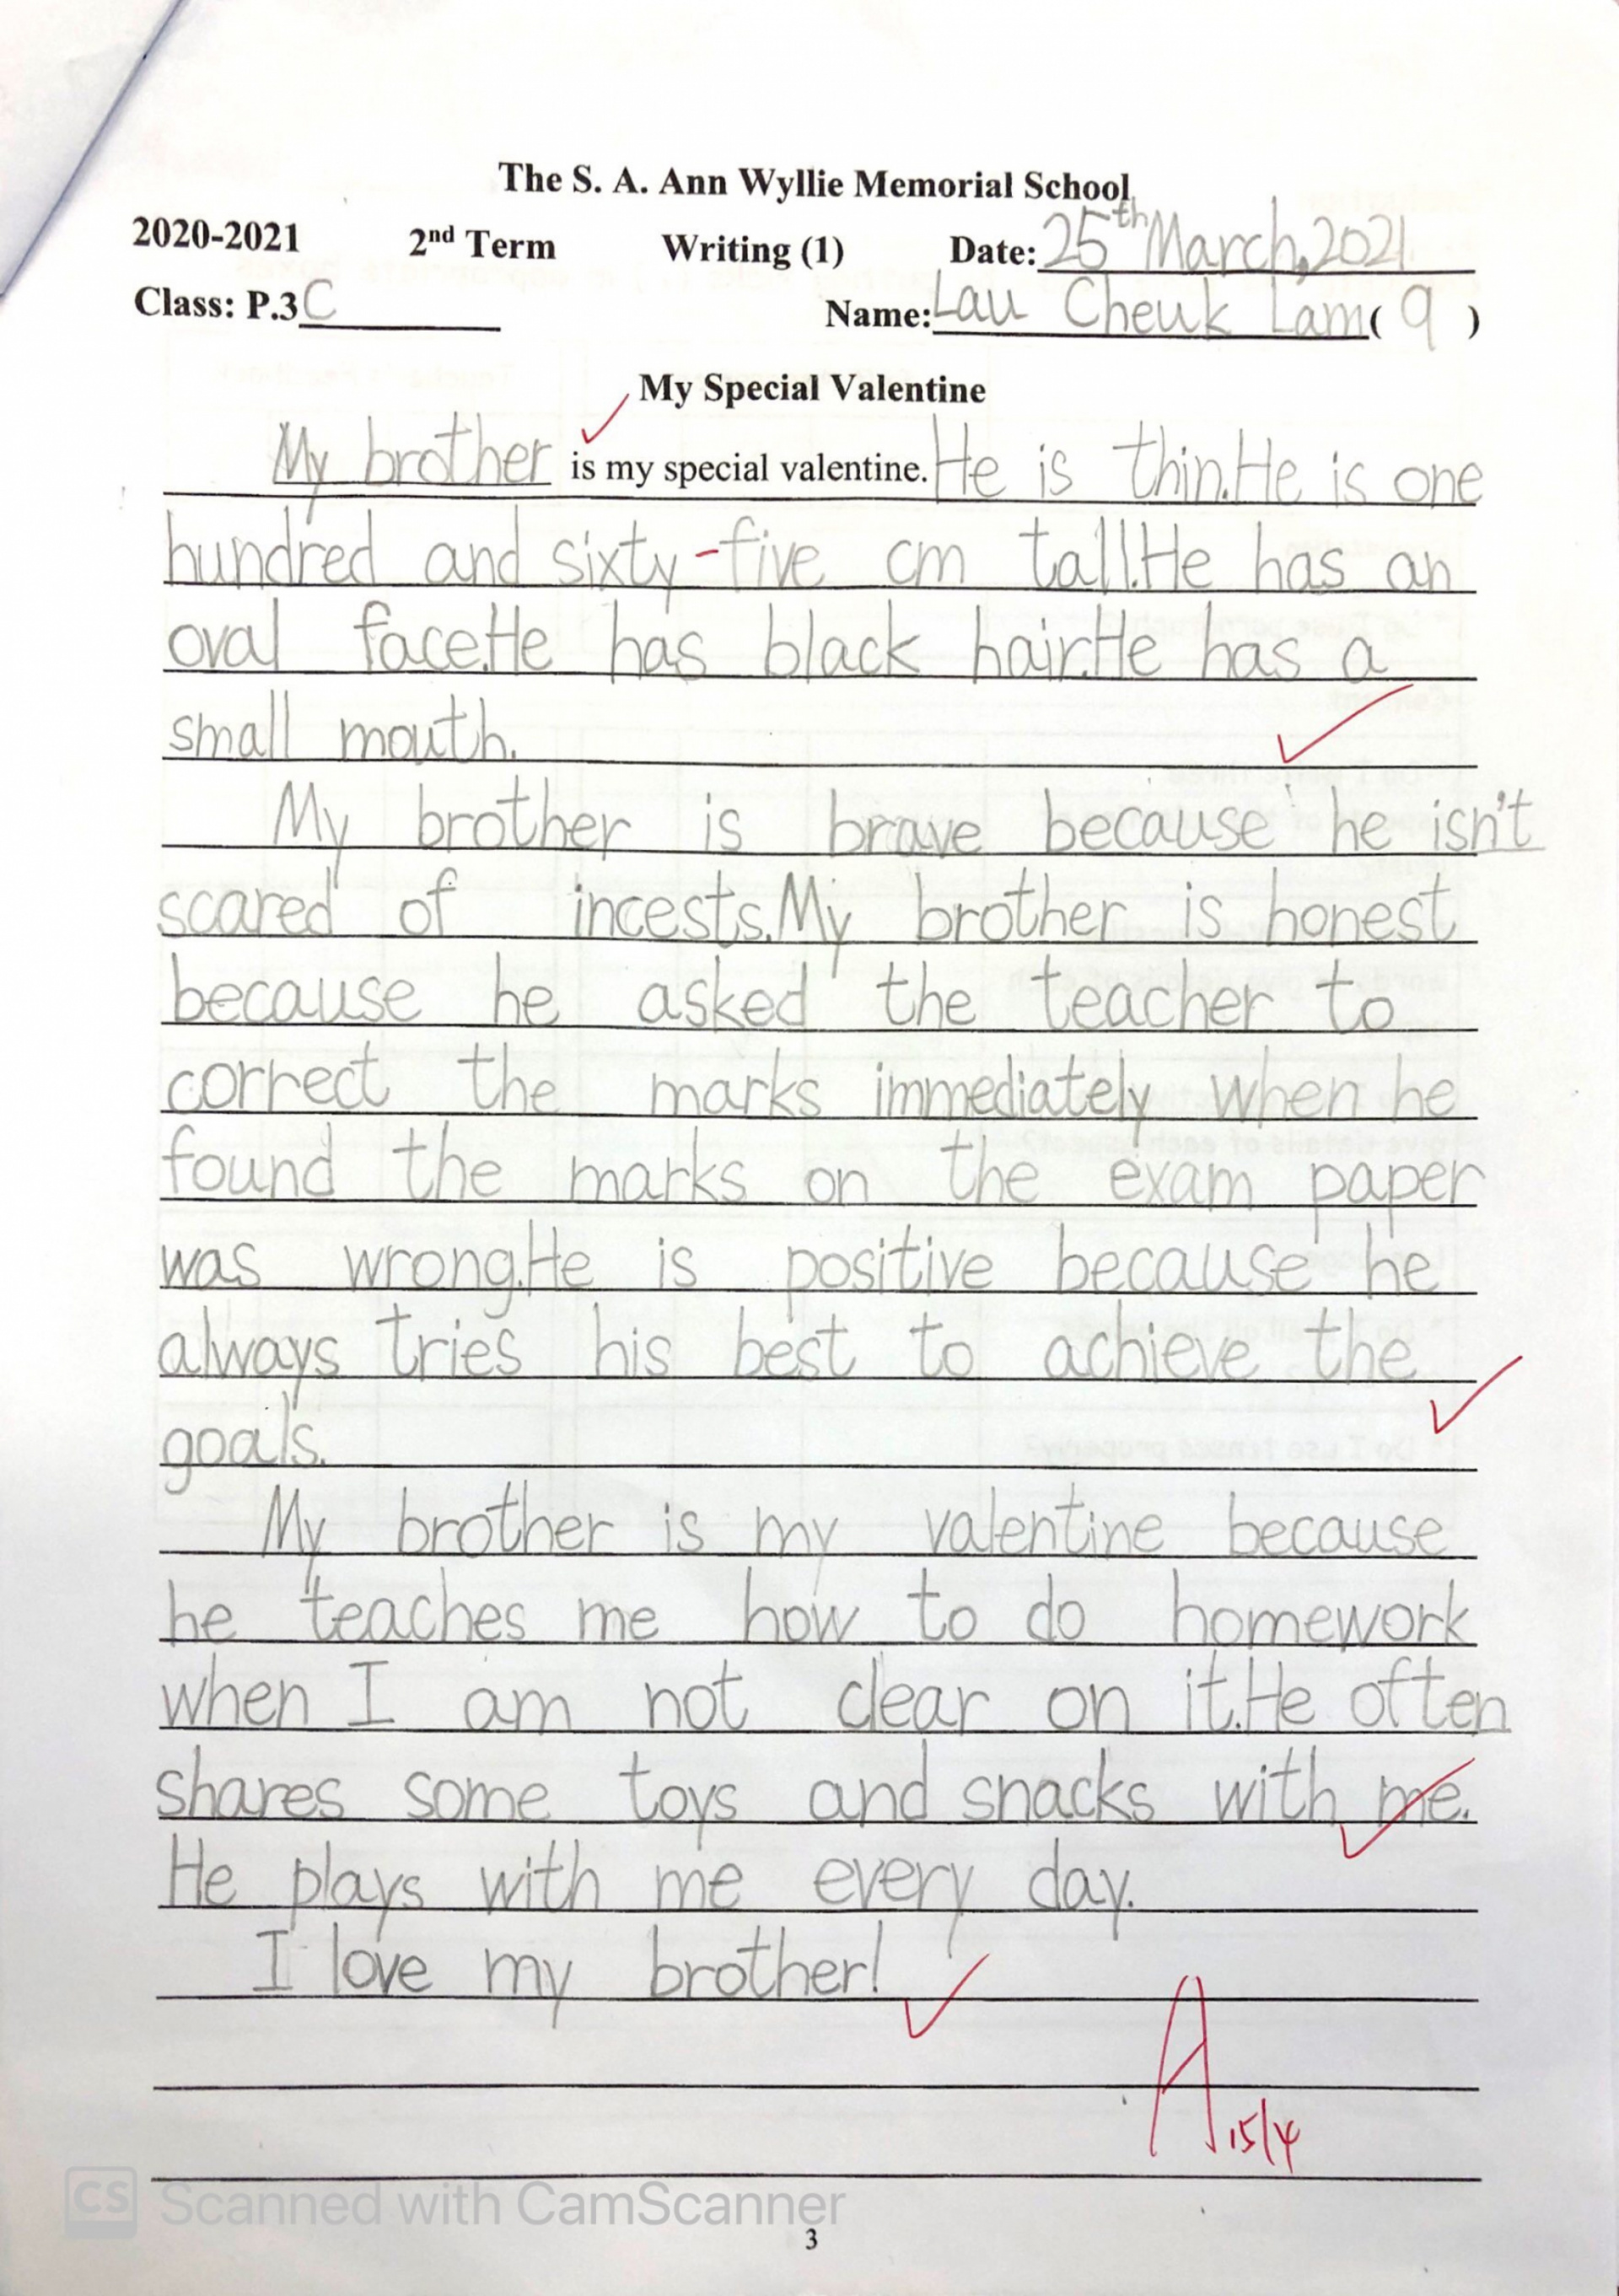 The S. A. Ann Wyllie Memorial School
2020-2021 2nd Term Writing (1) Date: 25th March, 2021
Class: P.3 C Name: Lau Cheuk Lam ( 9 )
My Special Valentine
My brother is my special valentine. He is thin. He is one
hundred and sixty-five cm tall. He has an
oval face. He has black hair. He has a
small mouth.
My brother is brave because he isn't
scared of incests. My brother is honest
because he asked the teacher to
correct the marks immediately when he
found the marks on the exam paper
was wrong. He is positive because he
always tries his best to achieve the
goals.
My brother is my valentine because
he teaches me how to do homework
when I am not clear on it. He often
shares some toys and snacks with me.
He plays with me every day.
I love my brother!
A 15/4
CS Scanned with CamScanner
3